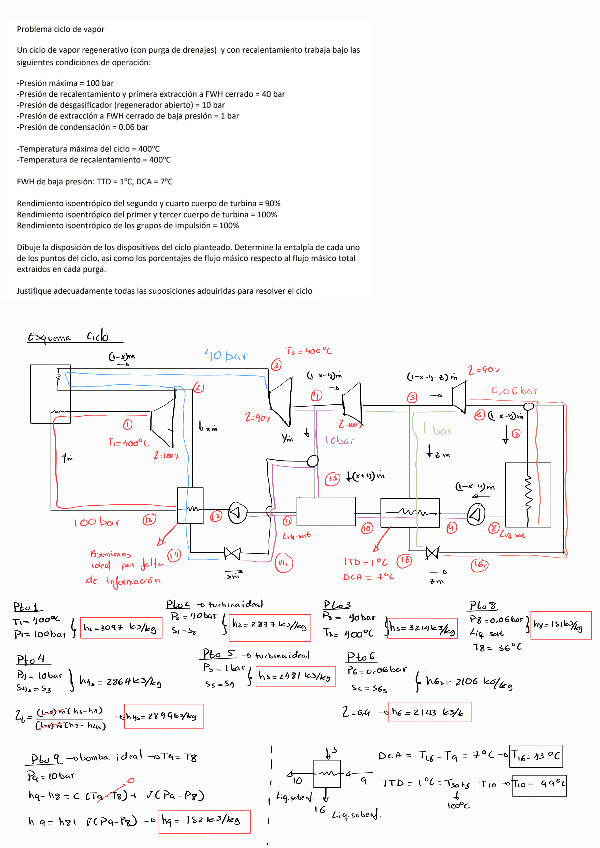 Problema ciclo de vapor
Un ciclo de vapor regenerativo (con purga de drenajes) y con recalentamiento trabaja bajo las
siguientes condiciones de operación:
-Presión máxima = 100 bar
-Presión de recalentamiento y primera extracción a FWH cerrado = 40 bar
-Presión de desgasificador (regenerador abierto) = 10 bar
-Presión de extracción a FWH cerrado de baja presión = 1 bar
-Presión de condensación = 0.06 bar
-Temperatura máxima del ciclo = 400°C
-Temperatura de recalentamiento = 400°C
FWH de baja presión: TTD = 1°C, DCA = 7°C
Rendimiento isoentrópico del segundo y cuarto cuerpo de turbina = 90%
Rendimiento isoentrópico del primer y tercer cuerpo de turbina = 100%
Rendimiento isoentrópico de los grupos de impulsión = 100%
Dibuje la disposición de los dispositivos del ciclo planteado. Determine la entalpía de cada uno
de los puntos del ciclo, asi como los porcentajes de flujo másico respecto al flujo másico total
extraídos en cada purga.
Justifique adecuadamente todas las suposiciones adquiridas para resolver el ciclo
Esquema Ciclo
(1-x)ṁ
40 bar
3
T3 = 400°C
2
(1-x)ṁ
4
(1-x-y-z)ṁ
5
η=90%
0,06 bar
1
T1=400°C
η=100%
xṁ
η=90%
yṁ
η=100%
10bar
1 bar
zṁ
6
(1-x-y)ṁ
1ṁ
13
(x+y)ṁ
(1-x-y)ṁ
100 bar
12
11
Liq. sat
10
9
8
Liq. sat
Asumimos
ideal por falta
de información
TTD = 1°C
DCA = 7°C
zṁ
Pto 1
T1 = 400°C
P1 = 100bar
h1=3097 kJ/kg
Pto 2 → turbina ideal
P2 = 40bar
S1 = S2
h2 = 2897 kJ/kg
Pto 3
P3 = 40bar
T3 = 400°C
h3 = 3214 kJ/kg
Pto 8
P8 = 0,06bar
Liq. sat
T8 = 36°C
h8 = 151 kJ/kg
Pto 4
P4 = 10bar
S4s = S3
h4s = 2864 kJ/kg
h4 = 2899 kJ/kg
Pto 5 → turbina ideal
P5 = 1bar
S5 = S4
h5 = 2481 kJ/kg
Pto 6
P6 = 0,06bar
S5 = S6s
h6s = 2106 kJ/kg
η=0,9 → h6 = 2143 kJ/k
Pto 9 → bomba ideal → T9 = T8
P9 = 10bar
h9-h8 = C (T9-T8) + v (P9-P8)
0
h9 = h8 + v (P9-P8) → h9 = 152 kJ/kg
5
10
9
16
Liq. subenf.
Liq. subenf.
DCA = T16 - T9 = 7°C → T16 = 43°C
TTD = 1°C = Tsat5 - T10 → T10 = 99°C
100°C